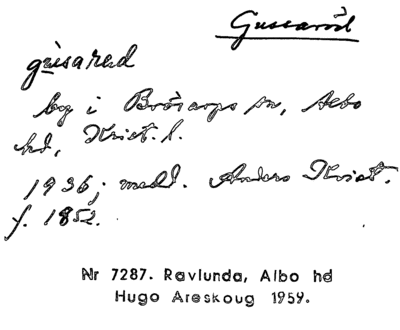 Gussaröd
gùsarəd
by i Brösarps sn, Albo
hd, Krist. l.
1936; medd. Anders Kvist.
f. 1852.
Nr 7287. Ravlunda, Albo hd
Hugo Areskoug 1959.